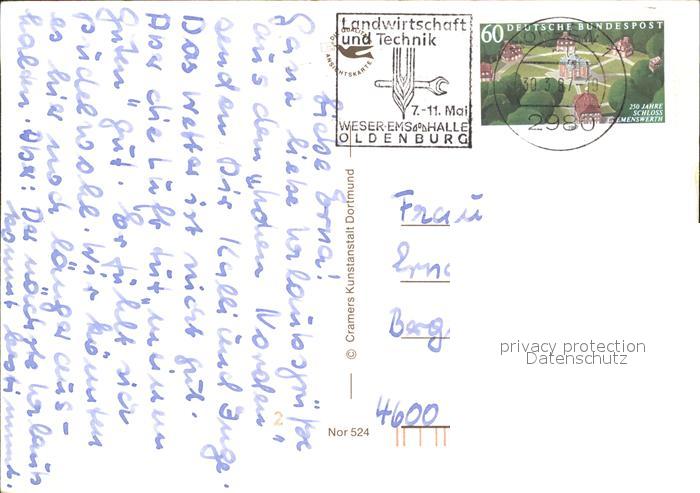 Liebe Erna!
Ganz liebe Urlaubsgrüße
aus dem "hohen Norden"
senden Dir Kulli und Inge.
Das Wetter ist nicht gut.
Aber die Luft tut meinem
"guten" gut. Er fühlt sich
pudelwohl. Wir könnten
es hier noch länger aus-
halten. Aber: Der nächste Urlaub
kommt bestimmt.
Landwirtschaft
und Technik
7.-11. Mai
WESER-EMS-HALLE
OLDENBURG
DIE QUALITÄTS
ANSICHTSKARTE
60 DEUTSCHE BUNDESPOST
250 JAHRE
SCHLOSS
CLEMENSWERTH
2980
© Cramers Kunstanstalt Dortmund
Frau
Erna
Berg
4600
2
Nor 524
privacy protection
Datenschutz